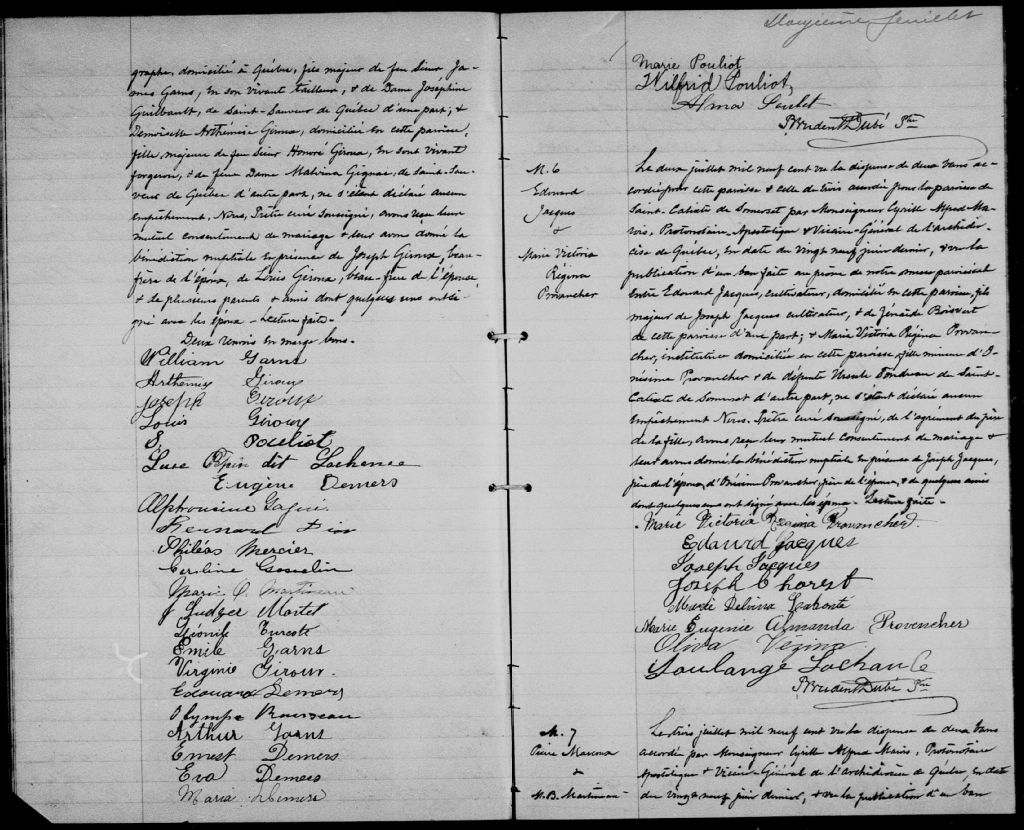 graphe, domicilié à Québec, fils majeur de feu Sieur Ja-
mes Garns, en son vivant tailleur, & de Dame Joséphine
Guilbault, de Saint-Sauveur de Québec d'une part; &
Demoiselle Arthémise Giroux, domiciliée en cette paroisse,
fille majeure de feu Sieur Honoré Giroux, en son vivant
forgeron, & de feue Dame Malvina Gignac, de Saint-Sau-
veur de Québec d'autre part, ne s'étant déclaré aucun
empêchement, Nous, Prêtre curé soussigné, avons reçu leur
mutuel consentement de mariage & leur avons donné la
bénédiction nuptiale en présence de Joseph Giroux, beau-
frère de l'époux, de Louis Giroux, beau-frère de l'épouse,
& de plusieurs parents & amis dont quelques uns ont si-
gné avec les époux - Lecture faite -
Deux renvois en marge bons -
William Garns
Arthémise Giroux
Joseph Giroux
Louis Giroux
S. Pouliot
Luce Pépin dit Lachance
Eugène Demers
Alphonsine
Bernard
Philéas Mercier
Caroline Gosselin
Marie O. Martineau
J Ludger Martel
Léonile Turcotte
Emile Garns
Virginie Giroux
Edouard Demers
Olympe Rousseau
Arthur Garns
Ernest Demers
Eva Demers
Maria Demers
Douzième feuillet
Marie Pouliot
Wilfrid Pouliot,
Alma
Prudent Dubé Ptre
M. 6
Edouard
Jacques
&
Marie Victoria
Régina
Provancher
Le deux juillet mil neuf cent vu la dispense de deux bans ac-
cordée pour cette paroisse & celle de trois accordée pour la paroisse de
Saint-Calixte de Somerset par Monseigneur Cyrille Alfred Ma-
rois, Protonotaire Apostolique & Vicaire-Général de l'archidio-
cèse de Québec, en date du vingt neuf juin dernier, & vu la
publication d'un ban faite au prône de notre messe paroissiale
entre Edouard Jacques, cultivateur, domicilié en cette paroisse, fils
majeur de Joseph Jacques cultivateur, & de Zénaïde Boisvert
de cette paroisse d'une part; & Marie Victoria Régina Provan-
cher, institutrice domiciliée en cette paroisse, fille mineure d'O-
nésime Provancher & de défunte Ursule de Saint-
Calixte de Somerset d'autre part, ne s'étant déclaré aucun
empêchement Nous, Prêtre curé soussigné, de l'agrément du père
de la fille, avons reçu leur mutuel consentement de mariage &
leur avons donné la bénédiction nuptiale en présence de Joseph Jacques,
père de l'époux, d'Onésime Provancher, père de l'épouse, & de quelques amis
dont quelques uns ont signé avec les époux - Lecture faite -
Marie Victoria Régina Provencher
Edouard Jacques
Joseph Jacques
Joseph Thorest
Marie Delvina Labonté
Marie Eugenie Almanda Provencher
Oliva Vézina
Soulange Lachance
Prudent Dubé Ptre
M. 7
Pierre
&
M. B. Martineau
Le trois juillet mil neuf cent vu la dispense de deux bans
accordée par Monseigneur Cyrille Alfred Marois, Protonotaire
Apostolique & Vicaire-Général de l'archidiocèse de Québec, en date
du vingt neuf juin dernier, & vu la publication d'un ban